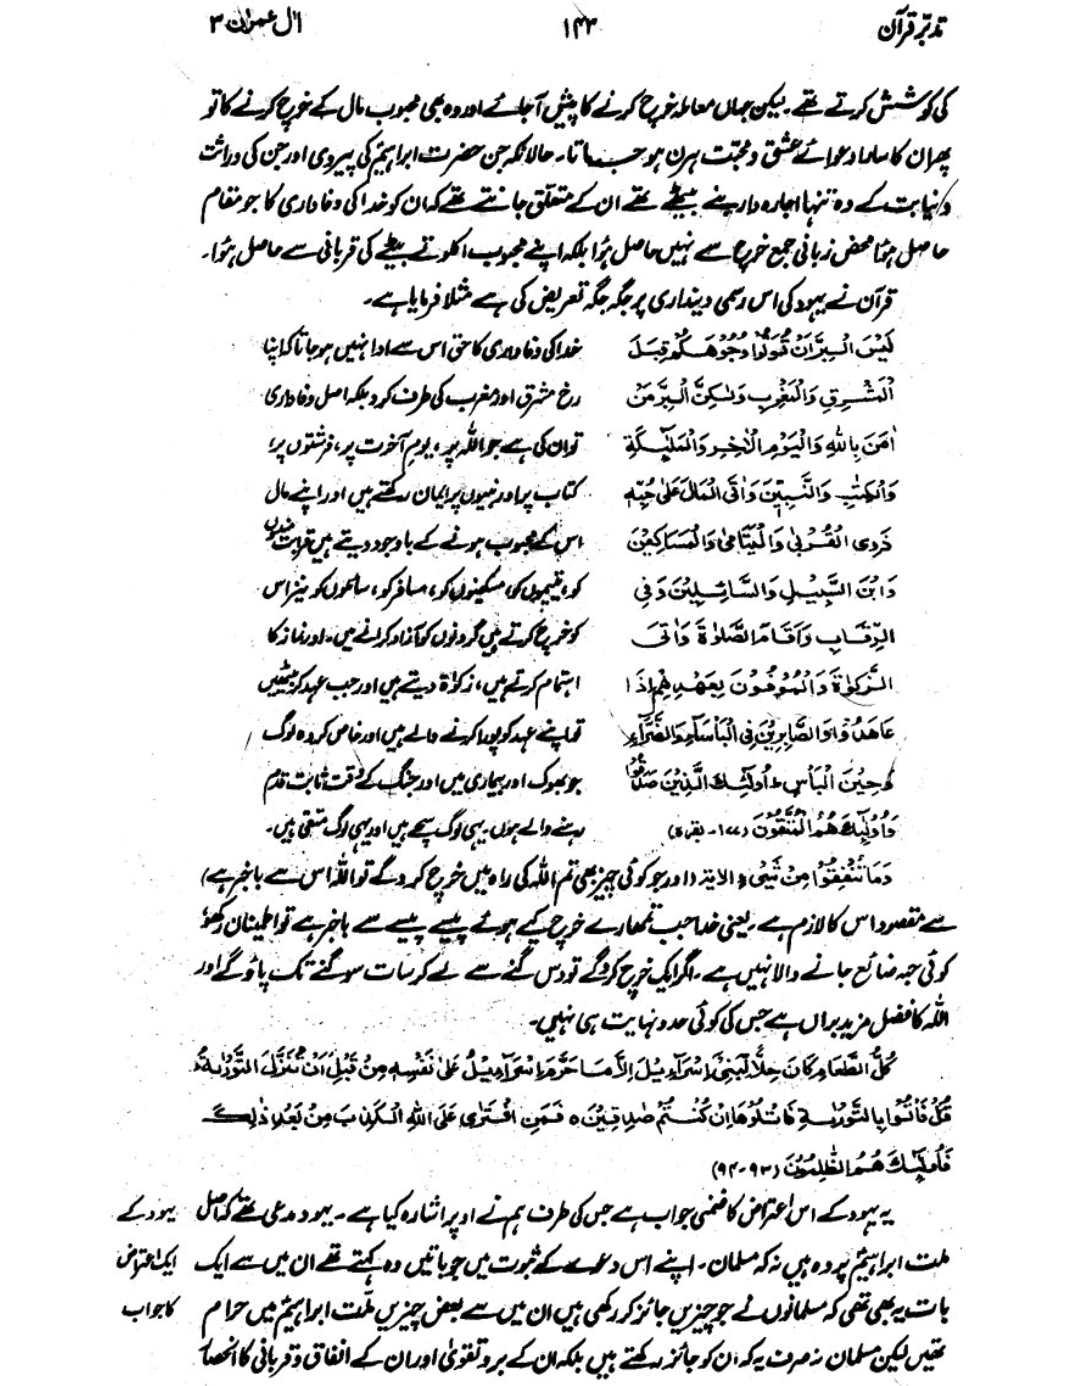 تدبّر قرآن ۱۴۳ اٰل عمران ۳
کی کوشش کرتے تھے۔ لیکن جہاں معاملہ خرچ کرنے کا پیش آجائے اور وہ بھی محبوب مال کے خرچ کرنے کا تو
پھر ان کا سارا دعوائے عشق و محبّت ہرن ہو جاتا۔ حالانکہ جن حضرت ابراہیمؑ کی پیروی اور جن کی وراثت
و نیابت کے وہ تنہا اجارہ دار بنے بیٹھے تھے ان کے متعلق جانتے تھے کہ ان کو خدا کی وفاداری کا جو مقام
حاصل ہوُا محض زبانی جمع خرچ سے نہیں حاصل ہوُا بلکہ اپنے محبوب اکلوتے بیٹے کی قربانی سے حاصل ہوُا۔
قرآن نے یہود کی اس رسمی دینداری پر جگہ جگہ تعریض کی ہے مثلاً فرمایا ہے۔
لَيْسَ الْبِرَّ اَنْ تُوَلُّوْا وُجُوْهَكُمْ قِبَلَ خدا کی وفاداری کا حق اس سے ادا نہیں ہو جاتا کہ اپنا
الْمَشْرِقِ وَالْمَغْرِبِ وَلٰكِنَّ الْبِرَّ مَنْ رخ مشرق اور مغرب کی طرف کرو بلکہ اصل وفاداری
اٰمَنَ بِاللّٰهِ وَالْيَوْمِ الْاٰخِرِ وَالْمَلٰٓئِكَةِ تو ان کی ہے جو اللہ پر، یومِ آخرت پر، فرشتوں پر،
وَالْكِتٰبِ وَالنَّبِيّٖنَ وَاٰتَى الْمَالَ عَلٰى حُبِّهٖ کتاب پر اور نبیوں پر ایمان رکھتے ہیں اور اپنے مال
ذَوِى الْقُرْبٰى وَالْيَتَامٰى وَالْمَسَاكِيْنَ اس کے محبوب ہونے کے باوجود دیتے ہیں قرابت مندوں
وَابْنَ السَّبِيْلِ وَالسَّآئِلِيْنَ وَفِى کو، یتیموں کو، مسکینوں کو، مسافر کو، سائلوں کو نیز اس
الرِّقَابِ وَاَقَامَ الصَّلٰوةَ وَاٰتَى کو خرچ کرتے ہیں گردنوں کو آزاد کرانے میں۔ اور نماز کا
الزَّكٰوةَ وَالْمُوْفُوْنَ بِعَهْدِهِمْ اِذَا اہتمام کرتے ہیں، زکوٰۃ دیتے ہیں اور جب عہد کر بیٹھیں
عَاهَدُوْا وَالصَّابِرِيْنَ فِى الْبَاْسَآءِ وَالضَّرَّآءِ تو اپنے عہد کو پورا کرنے والے ہیں اور خاص کر وہ لوگ
وَحِيْنَ الْبَاْسِ ؕ اُولٰٓئِكَ الَّذِيْنَ صَدَقُوْا جو بھوک اور بیماری میں اور جنگ کے وقت ثابت قدم
وَاُولٰٓئِكَ هُمُ الْمُتَّقُوْنَ (۱۷۷۔ بقرہ) رہنے والے ہوں۔ یہی لوگ سچے ہیں اور یہی لوگ متقی ہیں۔
وَمَا تُنْفِقُوْا مِنْ شَىْءٍ الایۃ (اور جو کوئی چیز بھی تم اللہ کی راہ میں خرچ کرو گے تو اللہ اس سے باخبر ہے)
سے مقصود اس کا لازم ہے۔ یعنی خدا جب تمھارے خرچ کیے ہوئے پیسے پیسے سے باخبر ہے تو اطمینان رکھو
کوئی حبہ ضائع جانے والا نہیں ہے۔ اگر ایک خرچ کرو گے تو دس گنے سے لے کر سات سو گنے تک پاؤ گے اور
اللہ کا فضل مزید براں ہے جس کی کوئی حد و نہایت ہی نہیں۔
كُلُّ الطَّعَامِ كَانَ حِلًّا لِّبَنِىْٓ اِسْرَآءِيْلَ اِلَّا مَا حَرَّمَ اِسْرَآءِيْلُ عَلٰى نَفْسِهٖ مِنْ قَبْلِ اَنْ تُنَزَّلَ التَّوْرٰىةُ ؕ
قُلْ فَاْتُوْا بِالتَّوْرٰىةِ فَاتْلُوْهَا اِنْ كُنْتُمْ صٰدِقِيْنَ ه فَمَنِ افْتَرٰى عَلَى اللّٰهِ الْكَذِبَ مِنْ بَعْدِ ذٰلِكَ
فَاُولٰٓئِكَ هُمُ الظّٰلِمُوْنَ (۹۳۔۹۴)
یہ یہود کے اس اعتراض کا ضمنی جواب ہے جس کی طرف ہم نے اوپر اشارہ کیا ہے۔ یہود مدعی تھے کہ اصل یہود کے
ملت ابراہیمؑ پر وہ ہیں نہ کہ مسلمان۔ اپنے اس دعوے کے ثبوت میں جو باتیں وہ کہتے تھے ان میں سے ایک ایک اعتراض
بات یہ بھی تھی کہ مسلمانوں نے جو چیزیں جائز کر رکھی ہیں ان میں سے بعض چیزیں ملّت ابراہیمؑ میں حرام کا جواب
تھیں لیکن مسلمان نہ صرف یہ کہ ان کو جائز رکھتے ہیں بلکہ ان کے بر و تقویٰ اور ان کے انفاق و قربانی کا انحصار